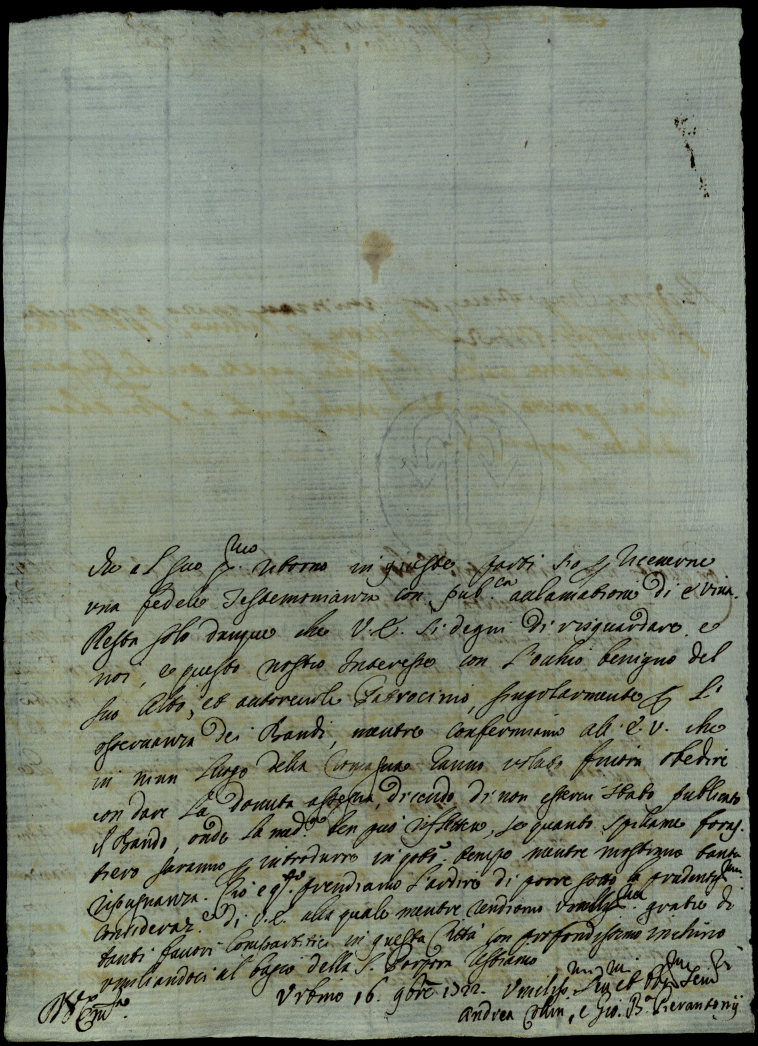 che al suo p.mo ritorno in queste parti sia p riceverne
una fedele Testimonianza con pub.ca acclamatione di e viva.
Resta solo dunque che V.E. si degni di risguardare, e
noi, e questo nostro Interesse con l'ochio benigno del
suo Alto, et autorevole Patrocinio, singolarmente p l'
osservanza dei Bandi, mentre confermiamo all'E.V. che
in niun luogo della hanno voluto finora obedire
con dare la dovuta assegna, dicendo di non esservi stato publicato
il Bando, onde la med.ma ben può riflettere, se quanto foras
tiero saranno p introdurre in tempo mentre mostrano tanta
ripugnanza. prendiamo l'ardire di porre sotto la
consideraz.e di V.E. alla quale mentre rendiamo gratie di
tanti favori compartitici in questa Città con profondissimo inchino
umiliandoci al bagio della S. Porpora restiamo
Urbino 16. 9bre 1722. Umiliss.mi
Andrea e Gio. B.a Pierantonij